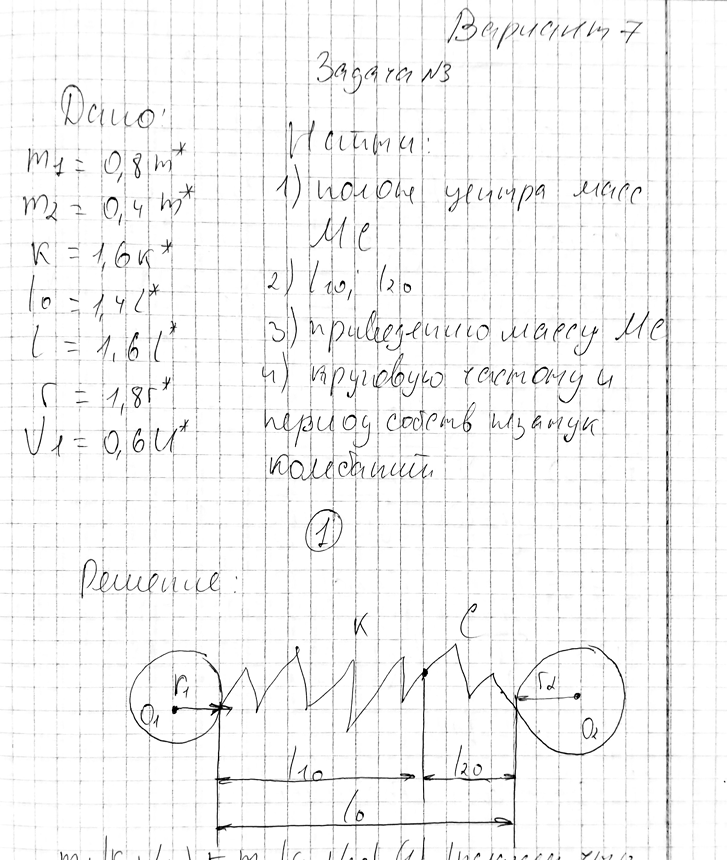 Вариант 7
Задача №3
Дано:
m1 = 0,8 m*
m2 = 0,4 m*
к = 1,6к*
l0 = 1,4l*
l = 1,6 l*
r = 1,8r*
V1 = 0,6 U*
Найти:
1) полож центра масс
МС
2) l10; l20
3) приведенную массу МС
4) круговую частоту и
период собств
колебаний
1
Решение:
к
C
r1
O1
r2
O2
l10
l20
l0